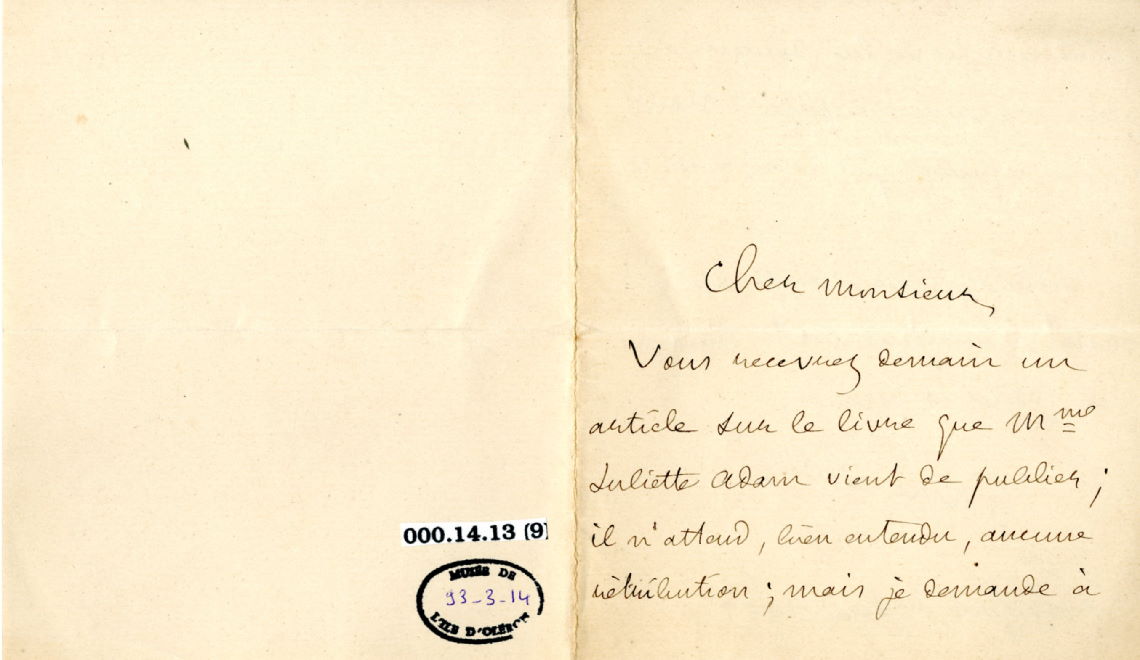 000.14.13 (9)
MUSÉE DE
93-3-14
L'ILE D'OLÉRON
Cher monsieur,
Vous recevrez demain un
article sur le livre que Mme
Juliette Adam vient de publier ;
il n'attend, bien entendu, aucune
rétribution ; mais je demande à